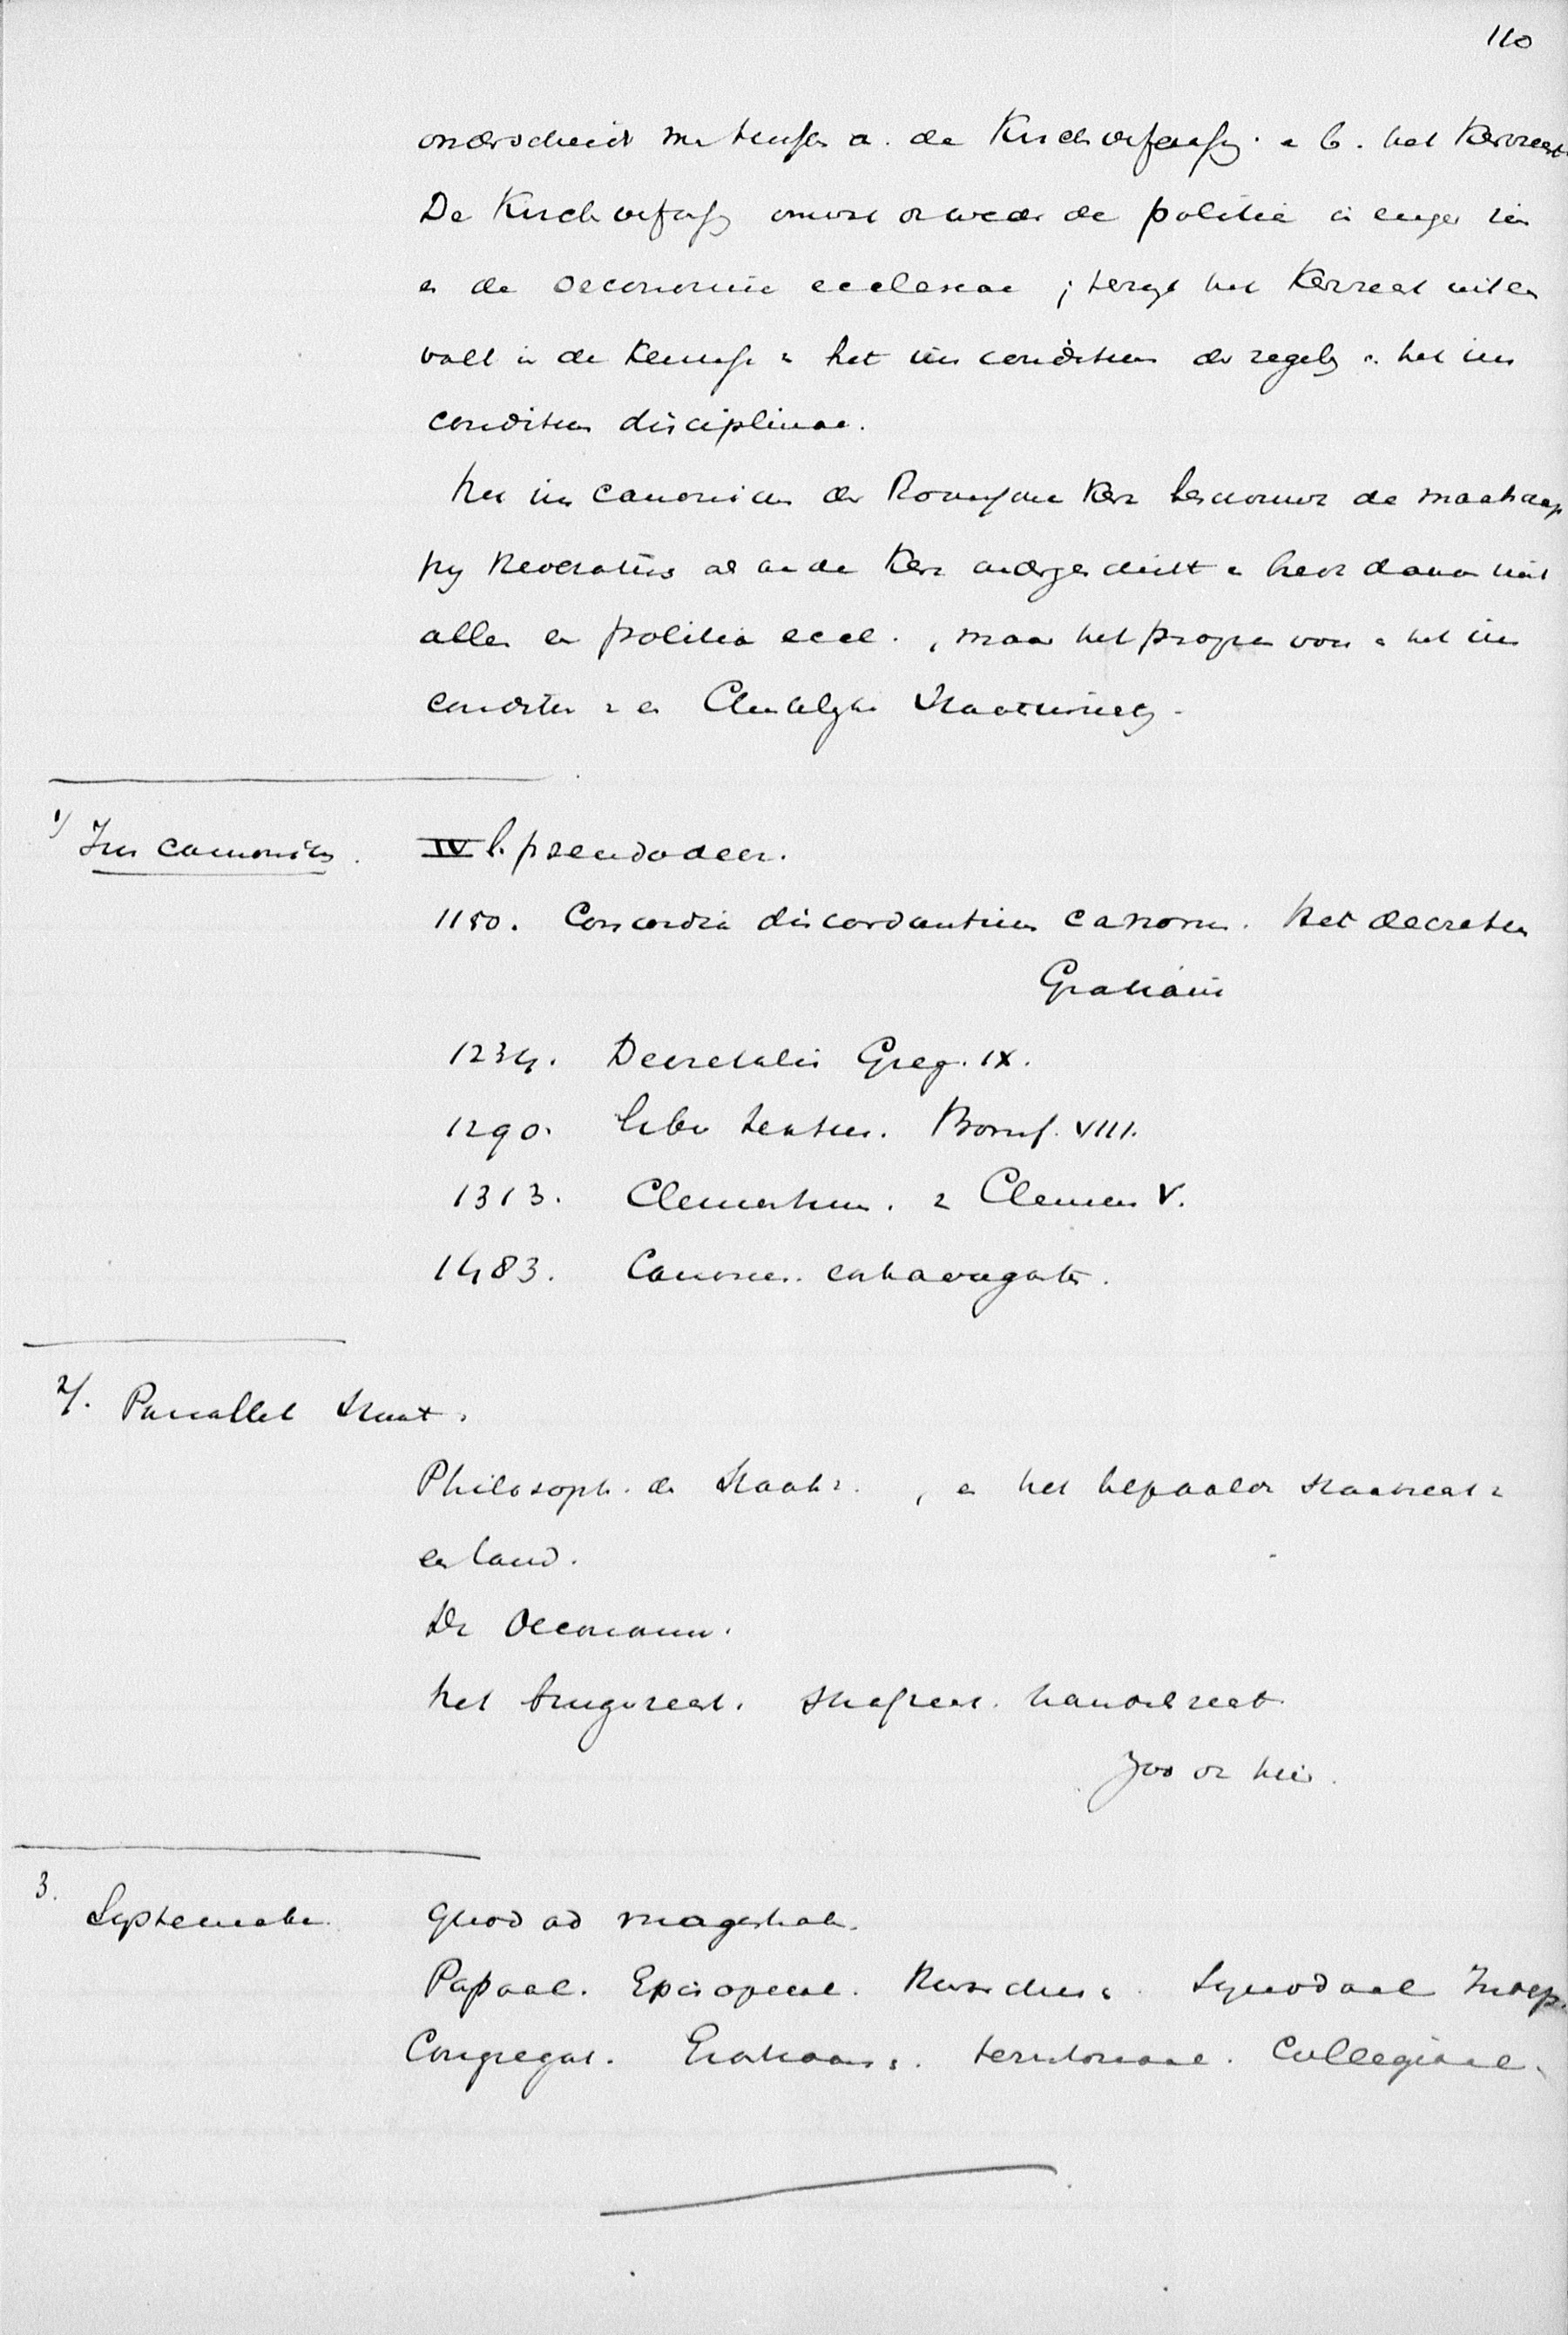 110
onderscheidt men tusschen a. de Kirchverfassg. en b. het Kerkrecht
De Kirchverfassg omvat ook weder de politie in enger zin
en de oeconomie ecclesiae ; terwyl het Kerkrecht uiteen
valt in de kennisse v. het ius conditum der regels en het ius
conditum disciplinae.
Het ius canonicum der Roomsche Kerk beschouwt de maatschap
py als aan de Kerk ondergeschikt en heeft daarom niet
alleen een politia eccl. , maar het proprium voor en het ius
conditum v. en Christelyke
1/ Jus canonicum. IV l. pseudodecr.
1150. Concordia discordantium canonum. Het decretum
Gratiani
1234. Decretalis Greg. IX.
1290. Liber sextus. Bonif. VIII.
1313. Clementinum. v Clemens V.
1483. Canones. extravagantes.
2/. Parallel Staat.
Philosoph. der Staats. , en het bepaalde staatsrecht v
een land.
De Oeconomie.
het burgerrecht. strafrecht. handelsrecht.
Zoo ook hier.
3. Systemata. Quod ad magistrat.
Papaal. Episcopaal. Synodaal Indep.
Congregat. Erastiaans. territoriaal. Collegiaal.